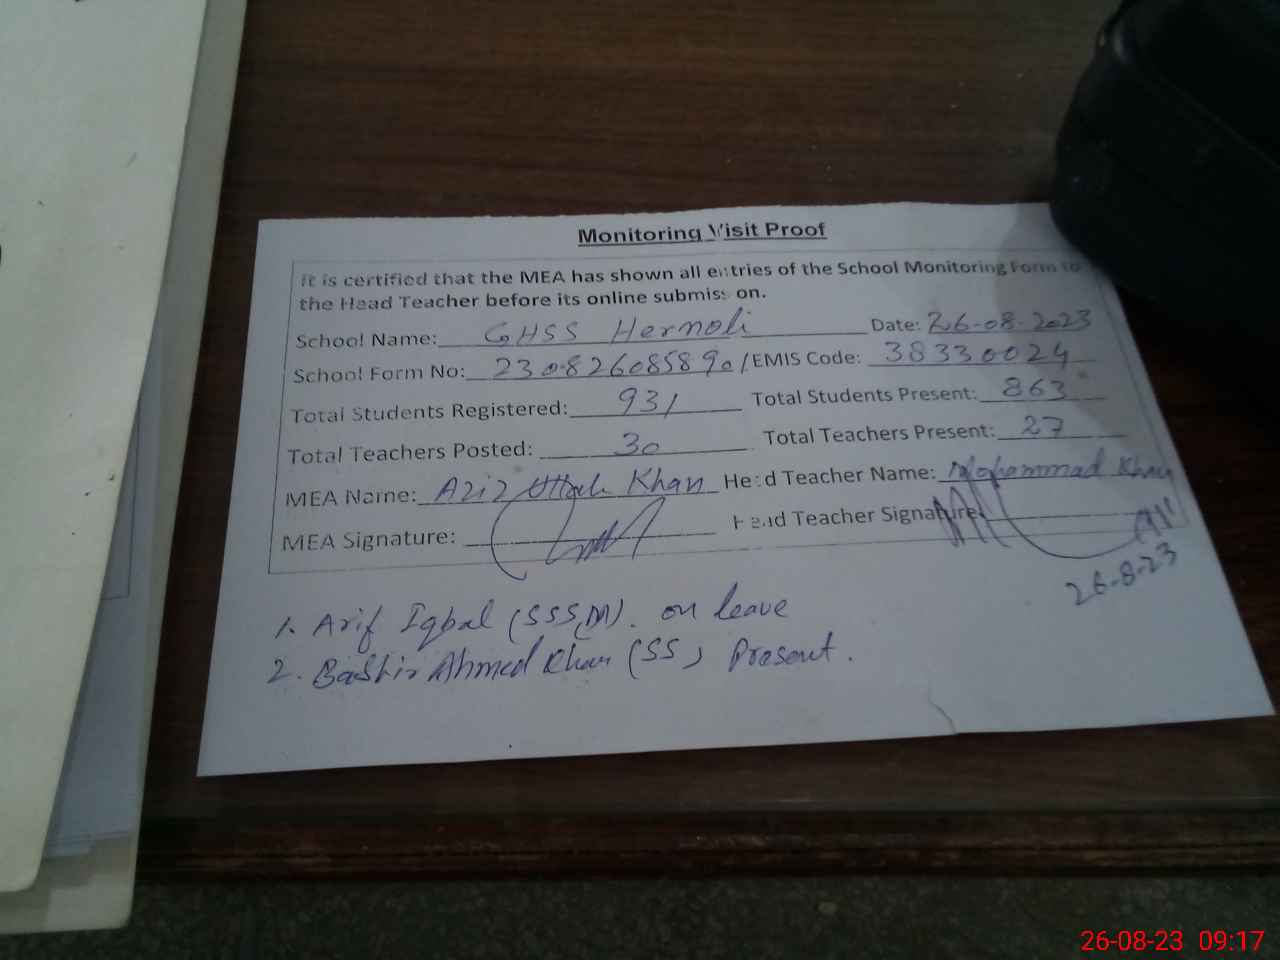 Monitoring Visit Proof
It is certified that the MEA has shown all entries of the School Monitoring Form to
the Head Teacher before its online submission.
School Name: GHSS Hernoli Date: 26-08-2023
School Form No: 2308260858901 EMIS Code: 38330024
Total Students Registered: 931 Total Students Present: 863
Total Teachers Posted: 30 Total Teachers Present: 27
MEA Name: Aziz Ullah Khan Head Teacher Name: Mohammad Khan
MEA Signature: Head Teacher Signature:
26-8-23
1. Arif Iqbal (SSS,M). on leave
2. Bashir Ahmed Khan (SS) Present.
26-08-23 09:17